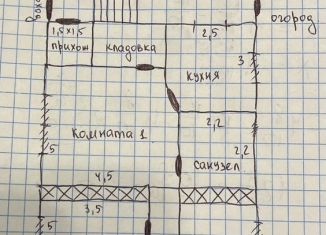 огород
1,5×1,5
2,5
прихож
кладовка
кухня
3
Комната 1
2,2
2,2
5
санузел
4,5
3,5
5